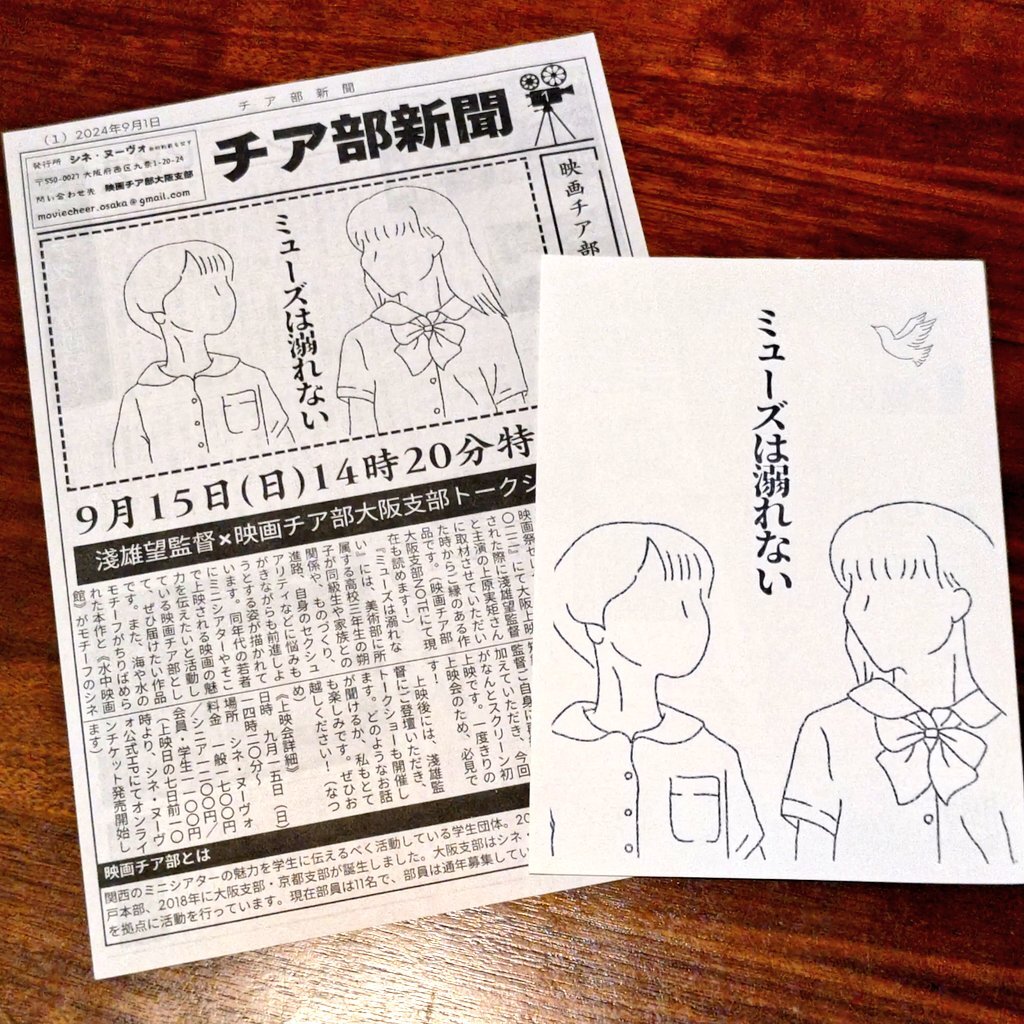 チア部新聞
（１）2024年9月1日
チア部新聞
発行所 シネ・ヌーヴォ
〒550-0027 大阪府西区九条1-20-24
問い合わせ先 映画チア部大阪支部
moviecheer.osaka@gmail.com
映画チア部
ミューズは溺れない
9月15日(日)14時20分特
淺雄望監督×映画チア部大阪支部トークシ
された際に淺雄望監督
と主演の上原実矩さん
に取材させていただい
た時からご縁のある作
品です。（映画チア部
大阪支部NOTEにて現
在も読めます！）
『ミューズは溺れな
い』には、美術部に所
属する高校三年生の朔
子が同級生や家族との
関係や、ものづくり、
進路、自身のセクシュ
アリティなどに悩みも
がきながらも前進しよ
うとする姿が描かれて
います。同年代の若者
にミニシアターやそこ
で上映される映画の魅
力を伝えたいと活動し
ている映画チア部とし
て、ぜひ届けたい作品
です。また、海や水の
モチーフがちりばめら
れた本作と『水中映画
館』がモチーフのシネ
加えていただき、今回
がなんとスクリーン初
上映です。一度きりの
上映会のため、必見で
す！
上映後には、淺雄監
督にご登壇いただき、
トークショーも開催し
ます。どのようなお話
が聞けるか、私もとて
も楽しみです。ぜひお
越しください！（なつ
め）
《上映会詳細》
日時 九月一五日（日）
一四時二〇分～
場所 シネ・ヌーヴォ
料金 一般一七〇〇円
／シニア一二〇〇円／
会員・学生一一〇〇円
（上映日の七日前一〇
時より、シネ・ヌーヴ
ォ公式HPにてオンライ
ンチケット発売開始し
ます）
映画チア部とは
関西のミニシアターの魅力を学生に伝えるべく活動している学生団体。20
戸本部、2018年に大阪支部・京都支部が誕生しました。大阪支部はシネ・
を拠点に活動を行っています。現在部員は11名で、部員は通年募集してい
ミューズは溺れない